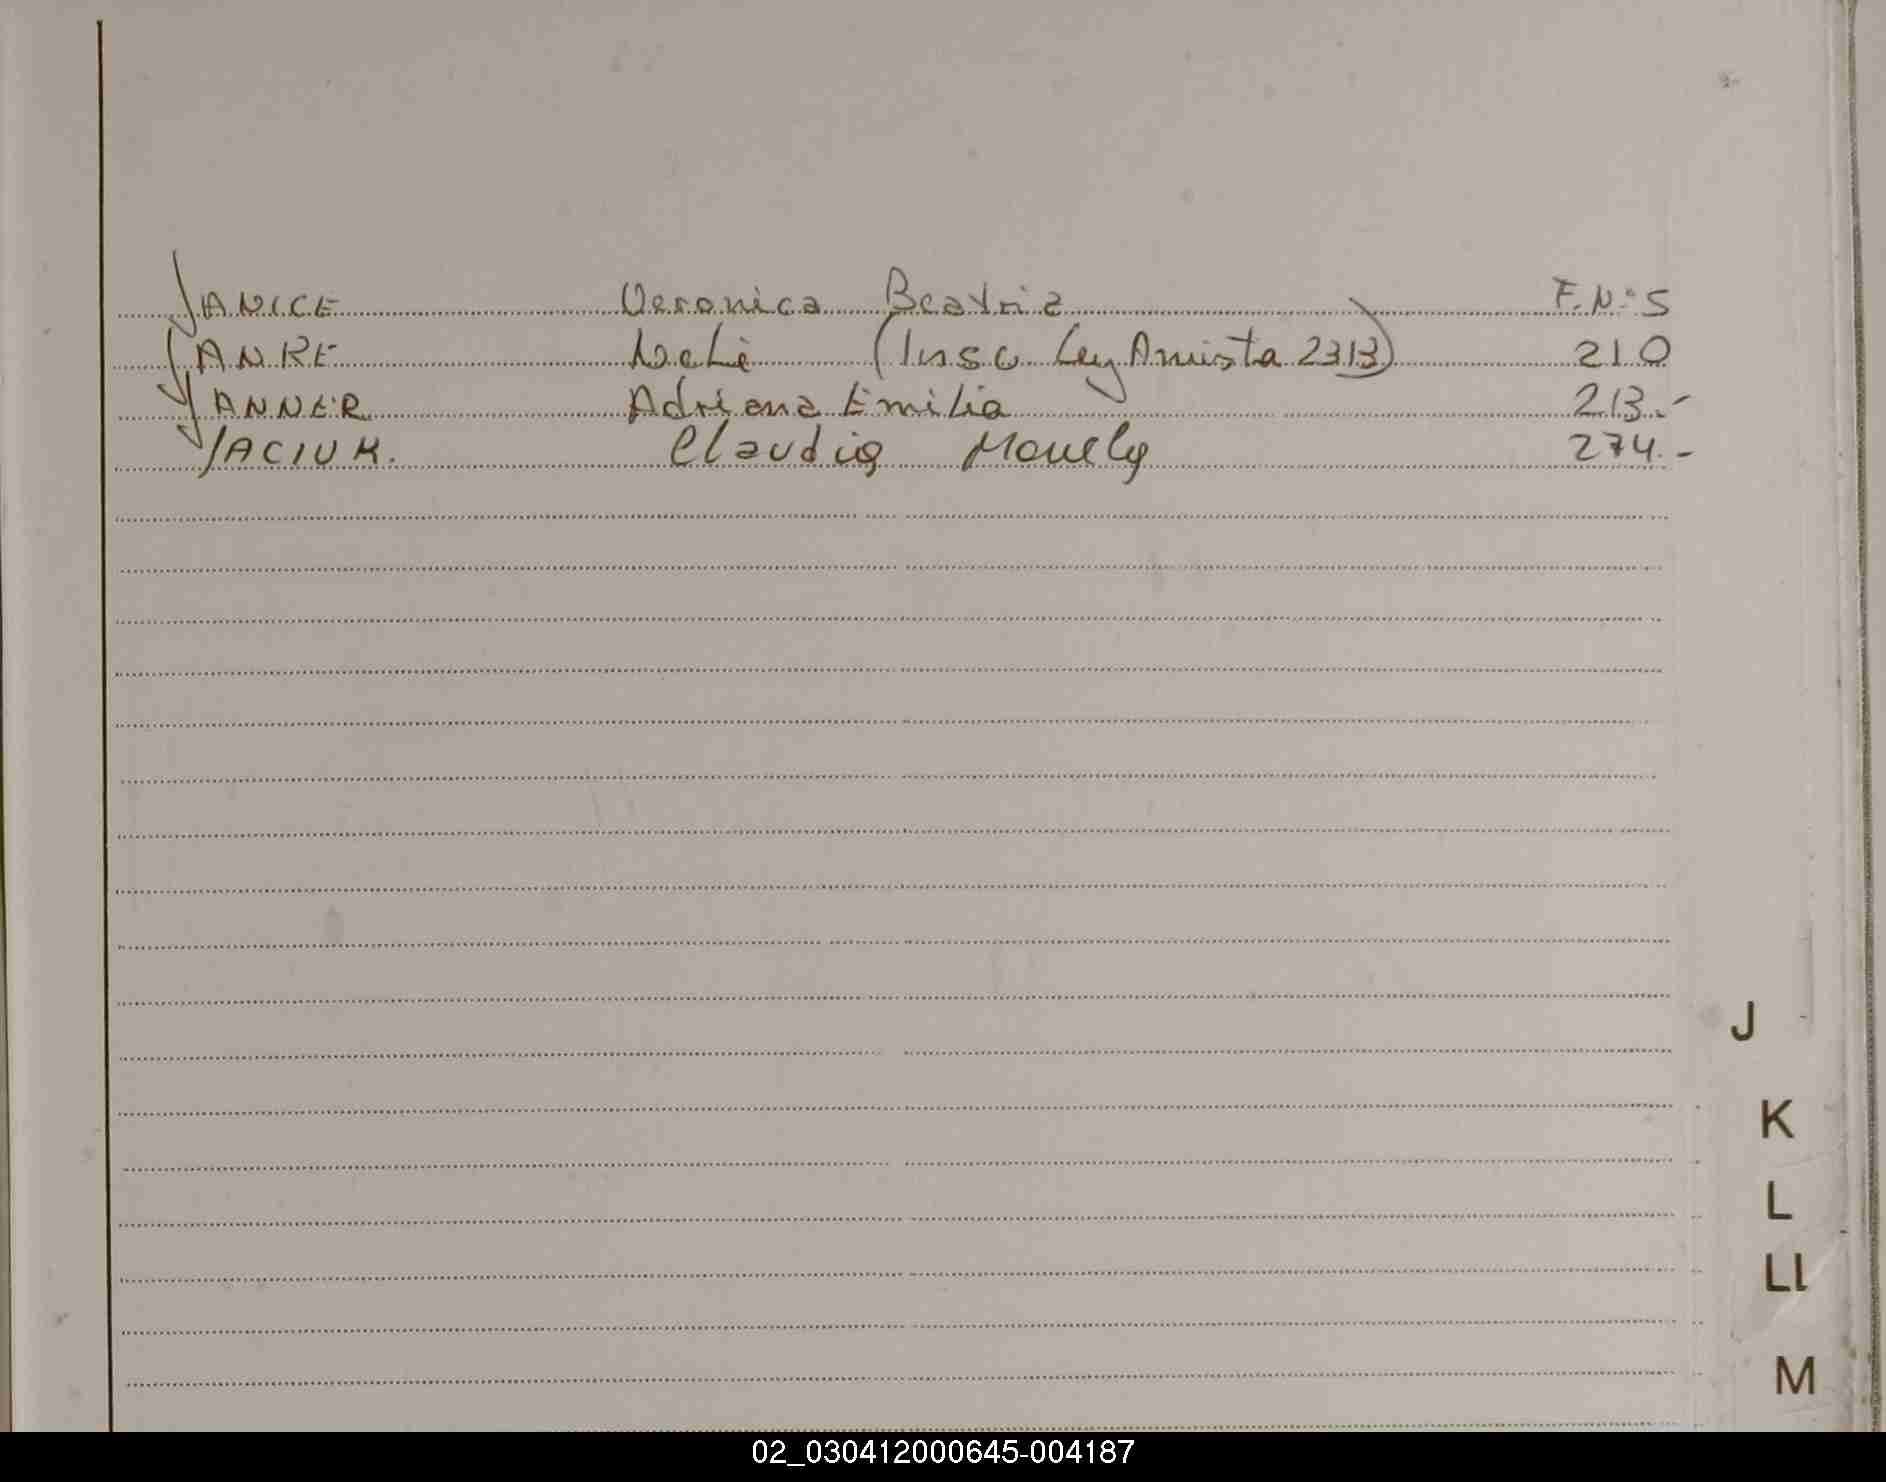 JANICE Veronica Beatriz F.Nº 5
JANRE Neli (Insc Ley Amista 2313) 210
JANNER Adriana Emilia 213.-
JACIUK. Claudia 274.-
J
K
L
Ll
M
02_030412000645-004187